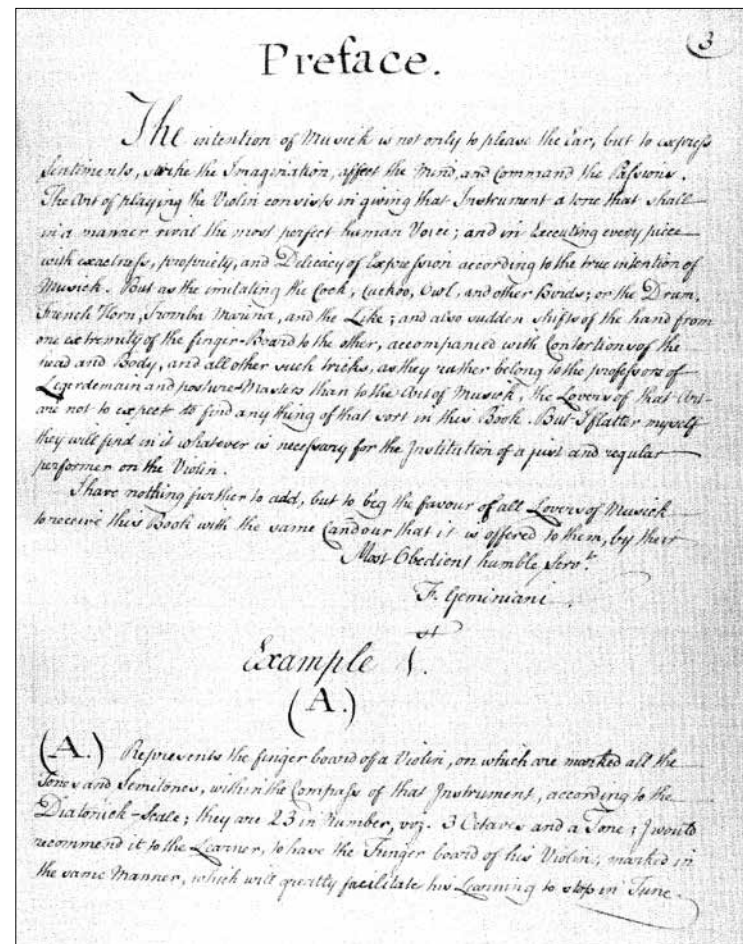 3
Preface.
The intention of Musick is not only to please the Ear, but to express
Sentiments, strike the Imagination, affect the Mind, and command the Passions.
The Art of playing the Violin consists in giving that Instrument a tone that shall
in a manner rival the most perfect human Voice; and in Executing every piece
with exactness, propriety, and Delicacy of Expression according to the true intention of
Musick. But as the imitating the Cock, Cuckoo, Owl, and other Birds; or the Drum,
French Horn, Tromba Marina, and the Like; and also sudden shifts of the hand from
one extremity of the finger-Board to the other, accompanied with Contortions of the
head and Body, and all other such tricks, as they rather belong to the professors of
Legerdemain and posture-Masters than to the Art of Musick, the Lovers of that Art
are not to expect to find any thing of that sort in this Book. But I flatter myself
they will find in it whatever is necessary for the Institution of a just and regular
performer on the Violin.
I have nothing further to add, but to beg the favour of all Lovers of Musick
to receive this Book with the same Candour that it is offered to them, by their
Most Obedient humble Servt.
F. Geminiani.
Example 1st.
(A.)
(A.) Represents the finger board of a Violin, on which are marked all the
Tones and Semitones, within the Compass of that Instrument, according to the
Diatonick-Scale; they are 23 in Number, viz. 3 Octaves and a Tone; I would
recommend it to the Learner, to have the Finger board of his Violin, marked in
the same Manner, which will greatly facilitate his Learning to stop in Tune.